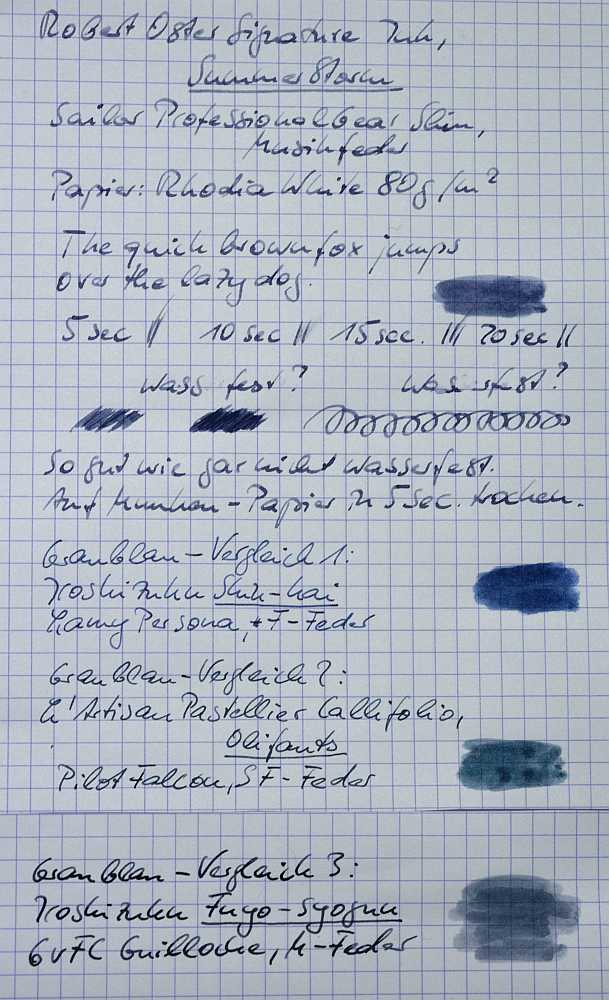 Robert Oster Signature Ink,
Summer Storm
Sailor Professional Gear Slim,
Musikfeder
Papier: Rhodia White 80g/m²
The quick brown fox jumps
over the lazy dog.
5 sec // 10 sec // 15 sec. /// 20 sec //
Wasserfest? Wasserfest?
So gut wie gar nicht wasserfest.
Auf Munken-Papier in 5 Sec. trocken.
Graublau-Vergleich 1:
Iroshizuku Shin-kai
Lamy Persona, F-Feder
Graublau-Vergleich 2:
L'Artisan Pastellier Callifolio,
Olifants
Pilot Falcon, SF-Feder
Graublau-Vergleich 3:
Iroshizuku Fuyo-Syogun
GvFC Guilloche, M-Feder